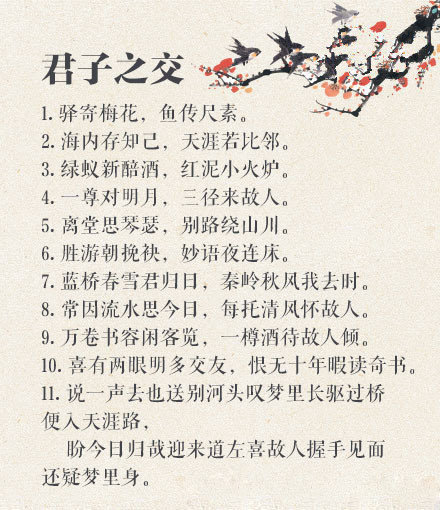 君子之交
1. 驿寄梅花，鱼传尺素。
2. 海内存知己，天涯若比邻。
3. 绿蚁新醅酒，红泥小火炉。
4. 一尊对明月，三径来故人。
5. 离堂思琴瑟，别路绕山川。
6. 胜游朝挽袂，妙语夜连床。
7. 蓝桥春雪君归日，秦岭秋风我去时。
8. 常因流水思今日，每托清风怀故人。
9. 万卷书容闲客览，一樽酒待故人倾。
10. 喜有两眼明多交友，恨无十年暇读奇书。
11. 说一声去也送别河头叹梦里长驱过桥
便入天涯路，
盼今日归哉迎来道左喜故人握手见面
还疑梦里身。